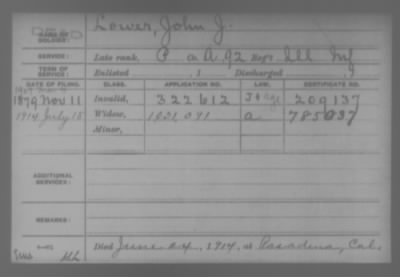 DEAD
NAME OF SOLDIER: Lower, John J.
SERVICE: Late rank, P Co A, 92 Reg't Ill Inf
TERM OF SERVICE: Enlisted , 1 Discharged , 1
DATE OF FILING. CLASS. APPLICATION NO. LAW. CERTIFICATE NO.
1879 Nov 11 Invalid, 322612 209137
1914 July 15 Widow, 1031091 a 785037
Minor,
ADDITIONAL SERVICES:
REMARKS:
Died June 24, 1914, at Pasadena, Cal.